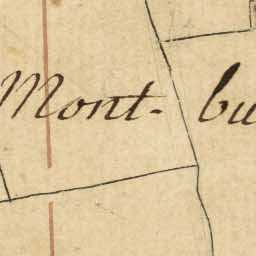 Mont- bu